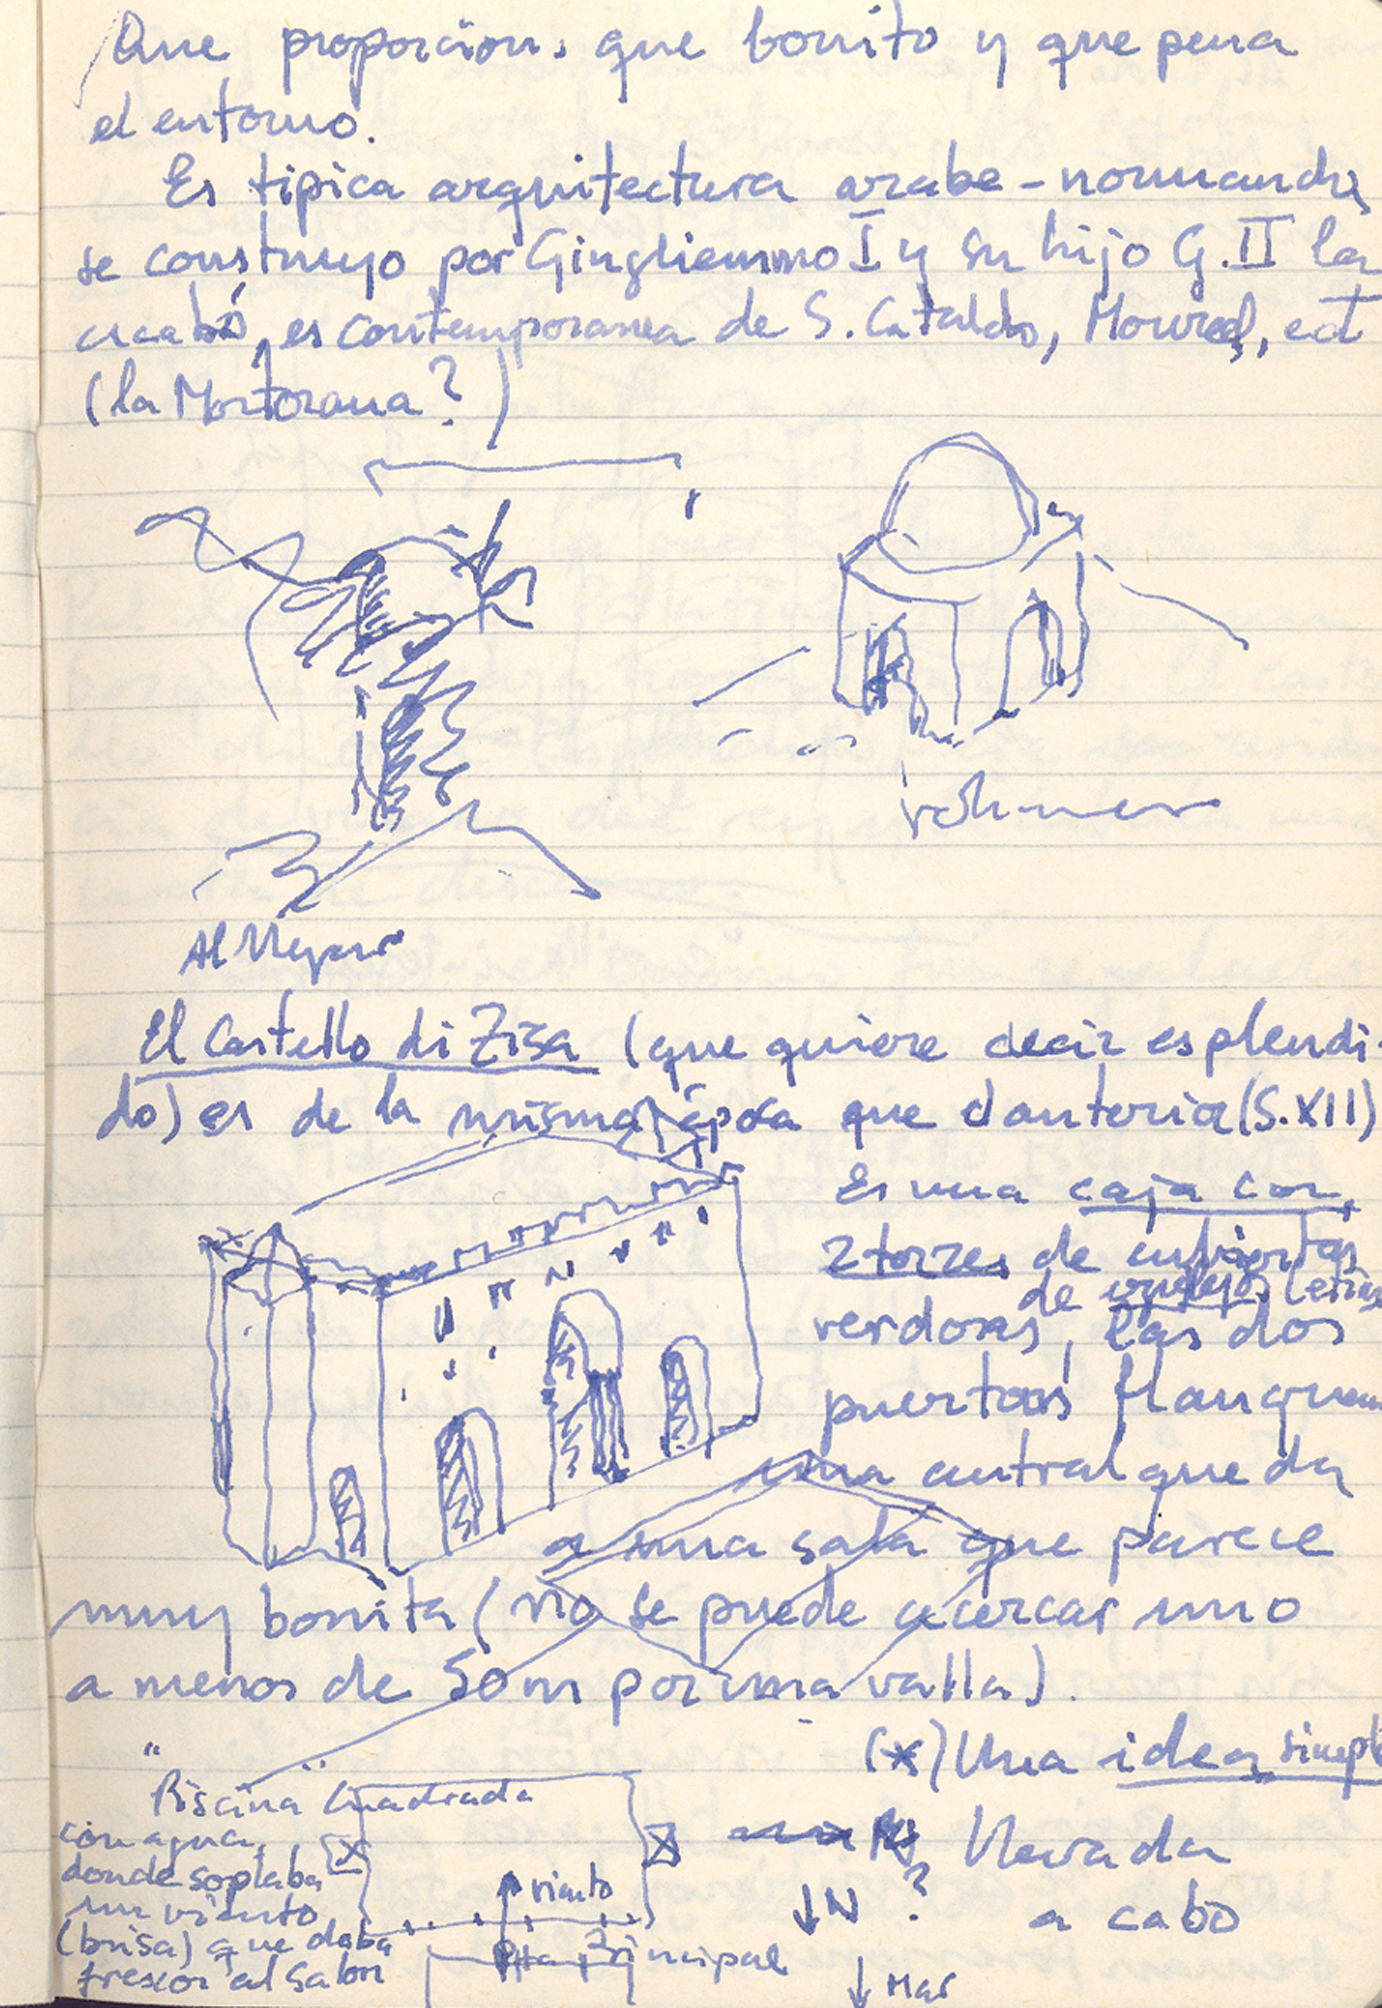 Que proporcion, que bonito y que pena
el entorno.
Es tipica arquitectura arabe-normanda,
se construyo por Gingliemmo I y su hijo G.II la
acabó, es contemporanea de S. Cataldo,
(la Martorana?)
volumen
El Castello di Zisa (que quiere decir esplendi-
do) es de la misma época que el anterior (S.XII)
Es una caja con
2 torres de cubiertas
verdosas, las dos
de letras
puertas flanquean
una central que da
a una sala que parece
muy bonita (no se puede acercar uno
a menos de 50m por una valla).
(*) Una idea simple
llevada
a cabo
"Piscina Cuadrada"
con agua,
donde soplaba
un viento
(brisa) que daba
frescor al salon
viento
Pta Principal
N ?
Mar